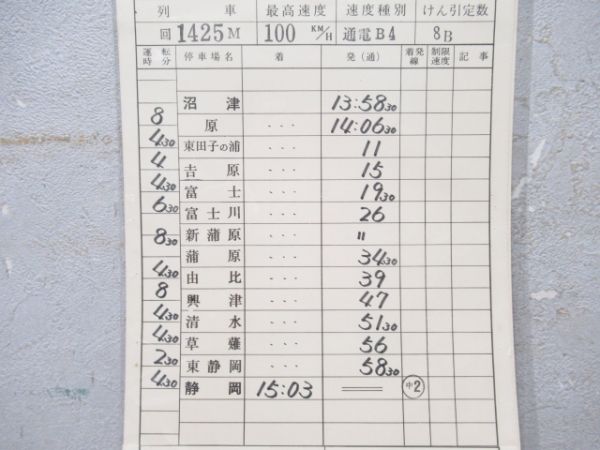 列車 最高速度 速度種別 けん引定数
回1425M 100 KM/H 通電B4 8B
運転時分 停車場名 着 発(通) 着発線 制限速度 記事
沼津 13:58 30
8
原 ・・・ 14:06 30
4 30
東田子の浦 ・・・ 11
4
吉原 ・・・ 15
4 30
富士 ・・・ 19 30
6 30
富士川 ・・・ 26
新蒲原 ・・・ 〃
8 30
蒲原 ・・・ 34 30
4 30
由比 ・・・ 39
8
興津 ・・・ 47
4 30
清水 ・・・ 51 30
4 30
草薙 ・・・ 56
2 30
東静岡 ・・・ 58 30
4 30
静岡 15:03 ══ 中2